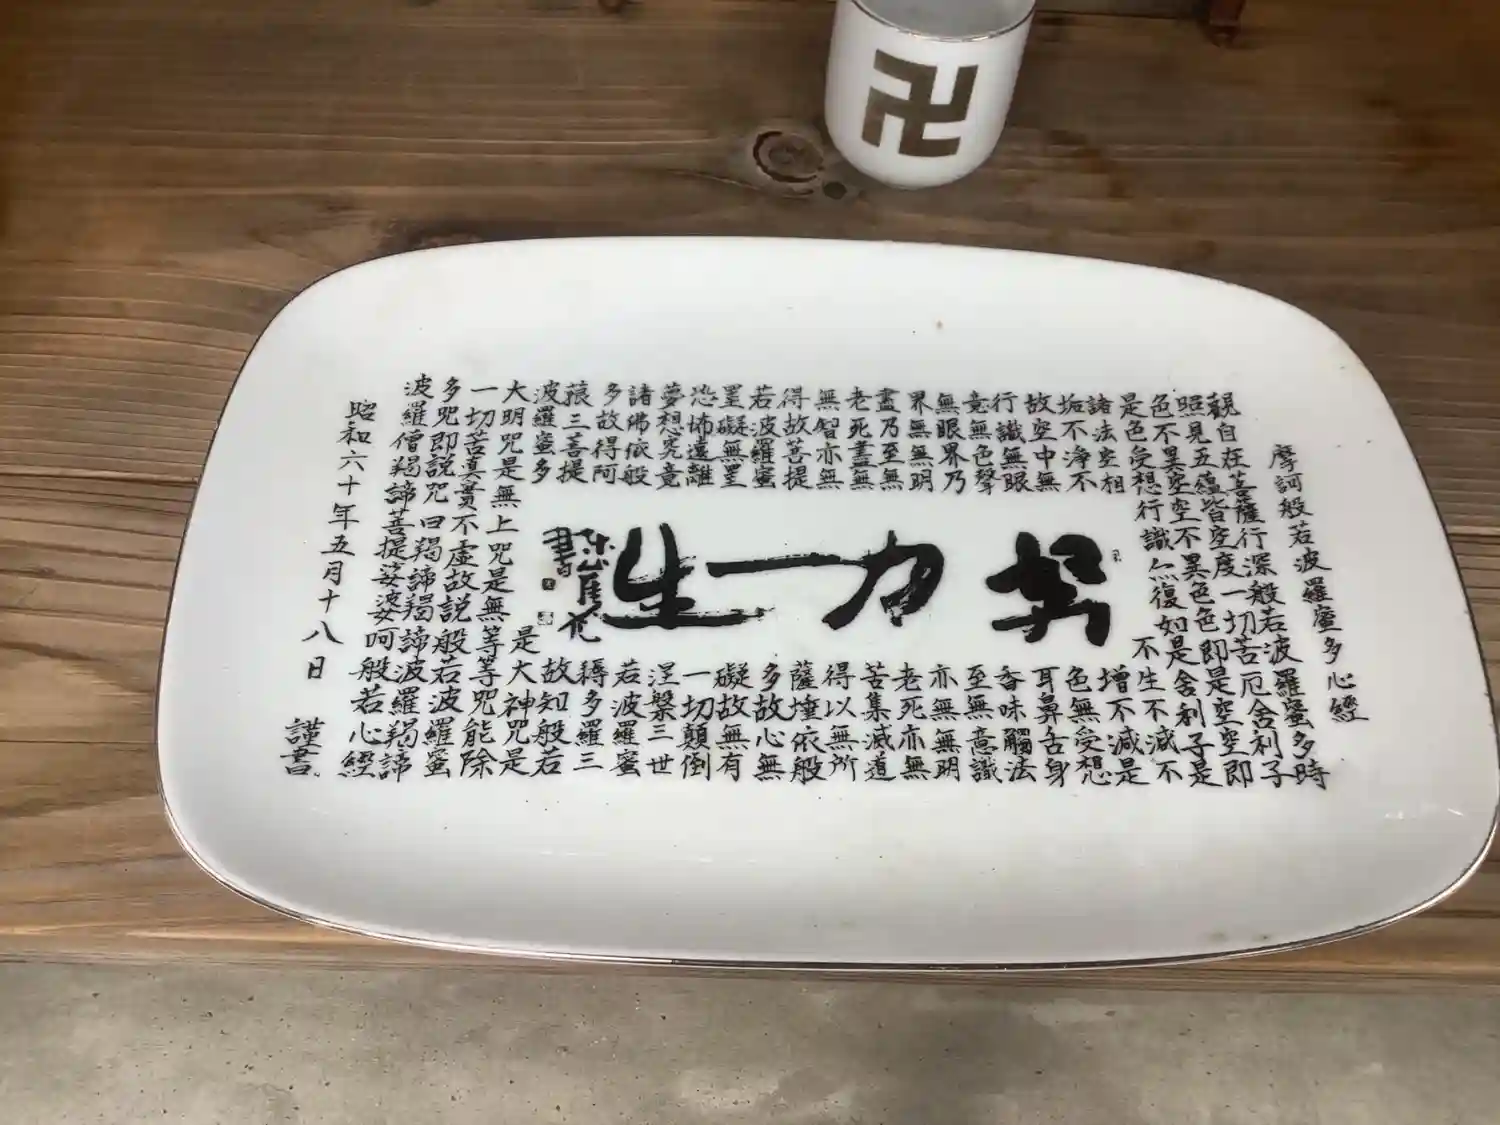 摩訶般若波羅蜜多心經
觀自在菩薩行深般若波羅蜜多時
照見五蘊皆空度一切苦厄舍利子
色不異空空不異色色即是空空即
是色受想行識亦復如是舍利子是
諸法空相不生不減不
垢不淨不增不減是
故空中無色無受想
行識無眼耳鼻舌身
意無色聲香味觸法
無眼界乃至無意識
界無無明亦無無明
盡乃至無老死亦無
老死盡無苦集滅道
無智亦無得以無所
得故菩提薩埵依般
若波羅蜜多故心無
罣礙無罣礙故無有
恐怖遠離一切顛倒
夢想究竟涅槃三世
諸佛依般若波羅蜜
多故得阿耨多羅三
藐三菩提故知般若
波羅蜜多是大神咒是
大明咒是無上咒是無等等咒能除
一切苦真實不虛故説般若波羅蜜
多咒即説咒曰羯諦羯諦波羅羯諦
波羅僧羯諦菩提娑婆呵般若心經
昭和六十年五月十八日 謹書
努力一生
書
卍